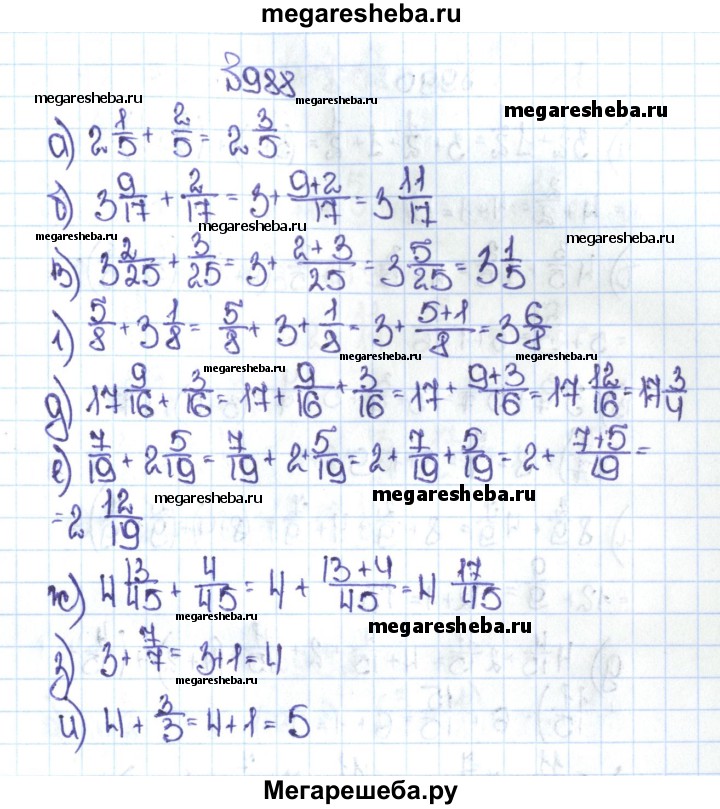 megaresheba.ru
№988
megaresheba.ru
megaresheba.ru
а) 2 1/5 + 2/5 = 2 3/5
б) 3 9/17 + 2/17 = 3 + (9+2)/17 = 3 11/17
megaresheba.ru
megaresheba.ru
megaresheba.ru
в) 3 2/25 + 3/25 = 3 + (2+3)/25 = 3 5/25 = 3 1/5
г) 5/8 + 3 1/8 = 5/8 + 3 + 1/8 = 3 + (5+1)/8 = 3 6/8
megaresheba.ru
megaresheba.ru
megaresheba.ru
д) 17 9/16 + 3/16 = 17 + 9/16 + 3/16 = 17 + (9+3)/16 = 17 12/16 = 17 3/4
е) 7/19 + 2 5/19 = 7/19 + 2 + 5/19 = 2 + 7/19 + 5/19 = 2 + (7+5)/19 =
megaresheba.ru
megaresheba.ru
= 2 12/19
ж) 4 13/45 + 4/45 = 4 + (13+4)/45 = 4 17/45
megaresheba.ru
megaresheba.ru
з) 3 + 7/7 = 3+1 = 4
megaresheba.ru
и) 4 + 3/3 = 4+1 = 5
Мегарешеба.ру